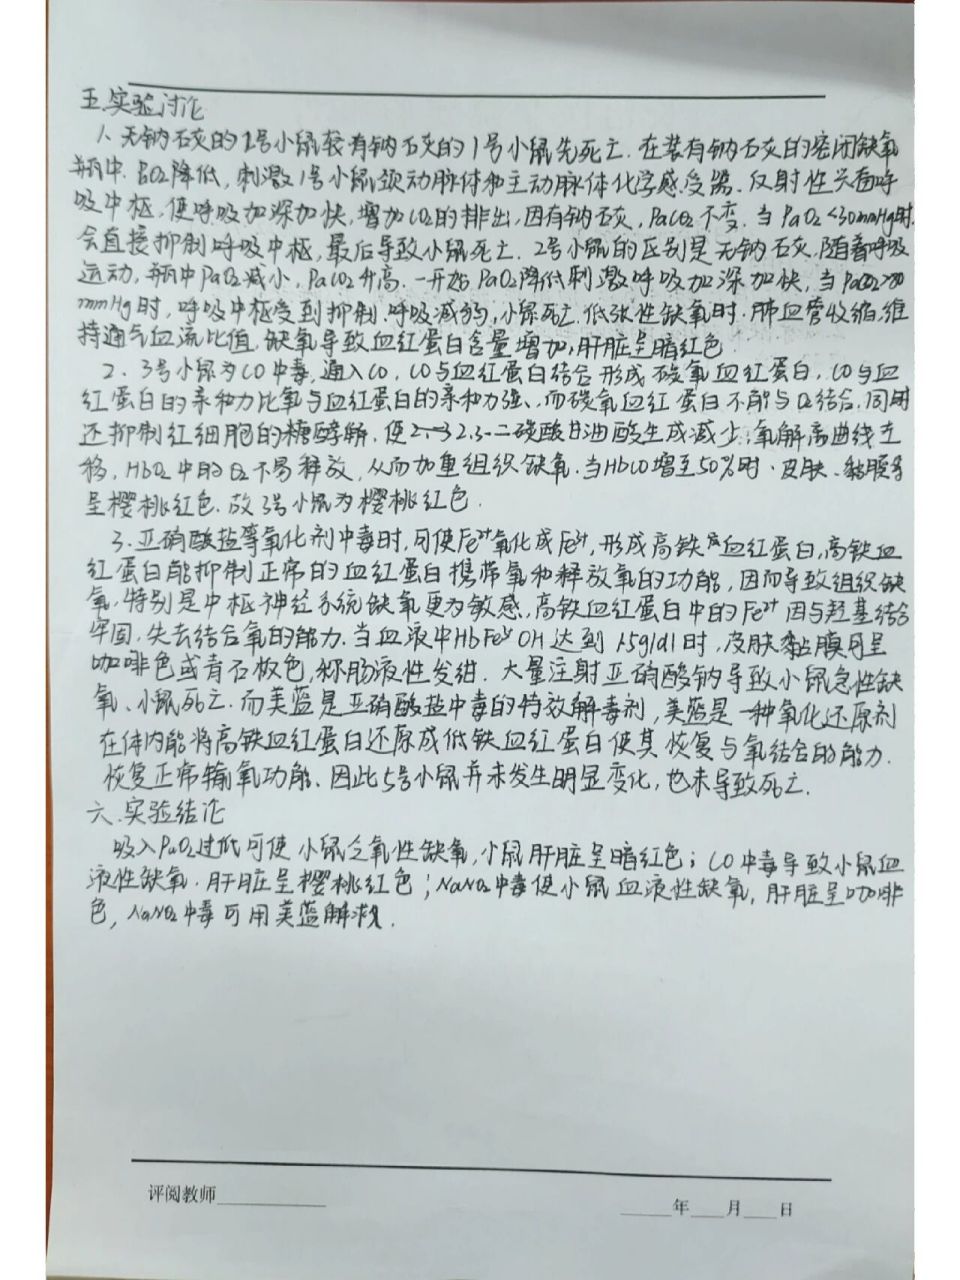 五.实验讨论
1、无钠石灰的2号小鼠较有钠石灰的1号小鼠先死亡.在装有钠石灰的密闭缺氧
瓶中.降低,刺激1号小鼠颈动脉体和主动脉体化学感受器.反射性兴奋呼
吸中枢,使呼吸加深加快,增加CO2的排出,因有钠石灰,PaCO2不变.当PaO2<30mmHg时,
会直接抑制呼吸中枢,最后导致小鼠死亡.2号小鼠的区别是无钠石灰.随着呼吸
运动,瓶中PaO2减小,PaCO2升高.一开始PaO2降低刺激呼吸加深加快,当PaCO2>80
mmHg时,呼吸中枢受到抑制.呼吸减弱,小鼠死亡.低张性缺氧时.肺血管收缩,维
持通气血流比值,缺氧导致血红蛋白含量增加,肝脏呈暗红色.
2、3号小鼠为CO中毒,通入CO,CO与血红蛋白结合形成碳氧血红蛋白,CO与血
红蛋白的亲和力比氧与血红蛋白的亲和力强、而碳氧血红蛋白不能与O2结合.同时
还抑制红细胞的糖酵解.使2.3-二磷酸甘油酸生成减少,氧解离曲线左
移,HbO2中的O2不易释放,从而加重组织缺氧.当HbCO增至50%时.皮肤、黏膜
呈樱桃红色.故3号小鼠为樱桃红色.
3.亚硝酸盐等氧化剂中毒时,可使Fe2+氧化成Fe3+,形成高铁血红蛋白,高铁血
红蛋白能抑制正常的血红蛋白携带氧和释放氧的功能,因而导致组织缺
氧.特别是中枢神经系统缺氧更为敏感,高铁血红蛋白中的Fe3+因与羟基结合
牢固,失去结合氧的能力.当血液中HbFe3+OH达到1.5g/dl时,皮肤黏膜可呈
咖啡色或青石板色,称肠液性发绀.大量注射亚硝酸钠导致小鼠急性缺
氧、小鼠死亡.而美蓝是亚硝酸盐中毒的特效解毒剂,美蓝是一种氧化还原剂
在体内能将高铁血红蛋白还原成低铁血红蛋白使其恢复与氧结合的能力.
恢复正常输氧功能、因此5号小鼠并未发生明显变化,也未导致死亡.
六.实验结论
吸入PaO2过低可使小鼠乏氧性缺氧,小鼠肝脏呈暗红色;CO中毒导致小鼠血
液性缺氧.肝脏呈樱桃红色;NaNO2中毒使小鼠血液性缺氧,肝脏呈咖啡
色,NaNO2中毒可用美蓝解救.
评阅教师
年 月 日